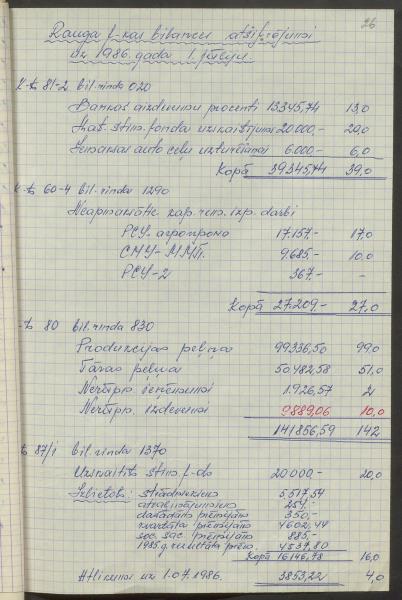 26
Rauga f-kas bilances atšifrējumi
uz 1986. gada 1. jūliju.
K-ts 81-2 bil. rinda 020
Bankas aizdevumu procenti 13.345,74 13,0
Mat. stim. fonda uzskaitījumi 20.000,- 20,0
auto ceļu uzturēšanai 6.000,- 6,0
Kopā 39345,74 39,0
K-ts 60-4 bil. rinda 1290
Neapmaksātie kap. rem. izp. darbi
РСУ агропрома 17.157.- 17,0
СМУ-ММП. 9.685.- 10,0
РСУ-2 367.- -
Kopā 27.209.- 27,0
-ts 80 bil. rinda 830
Produkcijas peļņa 99336,50 99,0
Tāras peļņa 50482,58 51,0
Nerūpn. ieņēmumi 1.926,57 2
Nerūpn. izdevumi 9889,06 10,0
141856,59 142
ts 87/1 bil. rinda 1370
Uzskaitīts stim. f-ds 20000,- 20,0
Izlietots: strādniekiem 5.517,54
atvaļinājumiem 257.-
dažādās prēmijās 350,-
kvartāla prēmijās 4602,44
soc. sac. prēmijās 885,-
1985. g. rezultāta prēm. 4537,80
Kopā 16146,78 16,0
Atlikums uz 1.07.1986. 3853,22 4,0